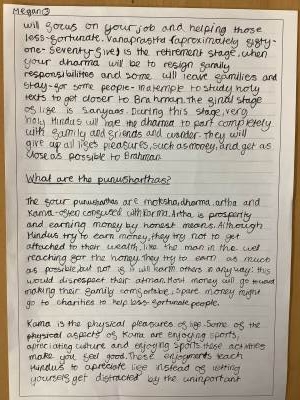 Megan
will focus on your job and helping those
less-fortunate. Vanaprastha (aproximately sixty-
one-seventy-five) is the retirement stage, when
your dharma will be to resign family
responsibilities and some will leave families and
stay-for some people- temple to study holy
texts to get closer to Brahman. The final stage
of life is Sanyass. During this stage, very
holy Hindus will the dharma to part completely
with family and friends and wander. They will
give up all life's pleasures, such as money, and get as
close as possible to Brahman
What are the purusharthas?
The four purusharthas are moksha, dharma, artha and
Kama-often confused with karma. Artha is prosperity
and earning money by honest means. Although
Hindus try to earn money, they try not to get
attached to their wealth, like the man in the well
reaching for the honey. They try to earn as much
as possible, but not if it will harm others in any way: this
would disrespect their atman. Most money will go toward
making their family comfortable. Spare money might
go to charities to help less-fortunate people.
Kama is the physical pleasures of life. Some of the
physical aspects of Kama are enjoying sports,
apreciating culture and enjoying these activities
make you feel good. These enjoyments teach
Hindus to apreciate life instead of letting
yourself get distracted by the unimportant